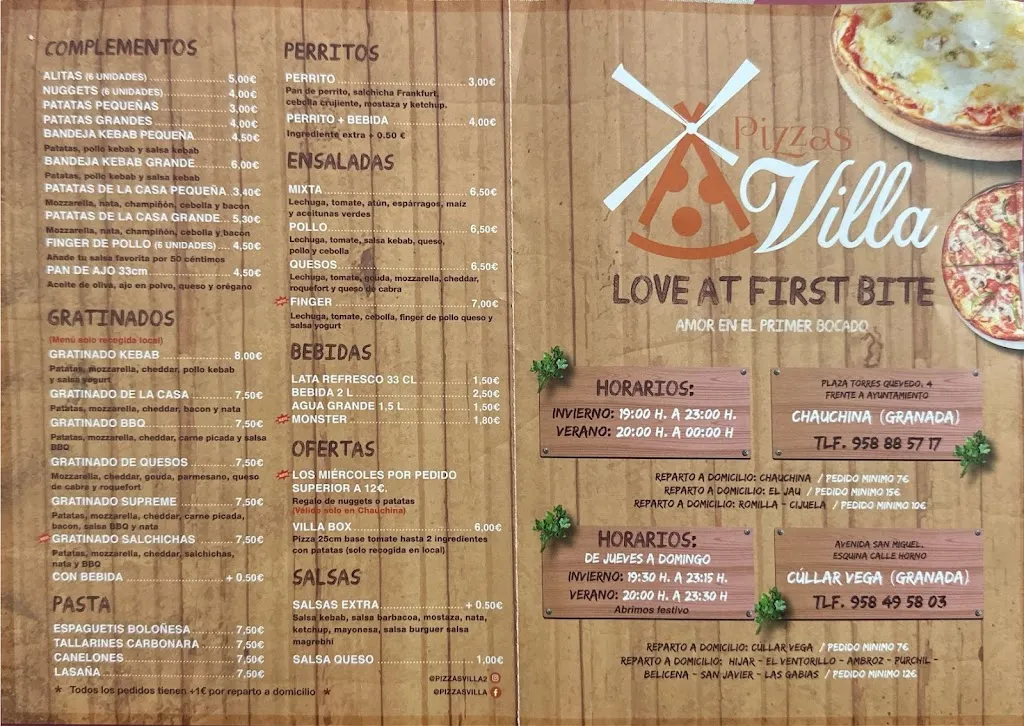 COMPLEMENTOS
ALITAS (6 UNIDADES) 5,00€
NUGGETS (6 UNIDADES) 4,00€
PATATAS PEQUEÑAS 3,00€
PATATAS GRANDES 4,00€
BANDEJA KEBAB PEQUEÑA 4,50€
Patatas, pollo kebab y salsa kebab
BANDEJA KEBAB GRANDE 6,00€
Patatas, pollo kebab y salsa kebab
PATATAS DE LA CASA PEQUEÑA 3,40€
Mozzarella, nata, champiñón, cebolla y bacon
PATATAS DE LA CASA GRANDE 5,30€
Mozzarella, nata, champiñón, cebolla y bacon
FINGER DE POLLO (6 UNIDADES) 4,50€
Añade tu salsa favorita por 50 céntimos
PAN DE AJO 33cm 4,50€
Aceite de oliva, ajo en polvo, queso y orégano
GRATINADOS
(Menú solo recogida local)
GRATINADO KEBAB 8,00€
Patatas, mozzarella, cheddar, pollo kebab
y salsa yogurt
GRATINADO DE LA CASA 7,50€
Patatas, mozzarella, cheddar, bacon y nata
GRATINADO BBQ 7,50€
Patatas, mozzarella, cheddar, carne picada y salsa
BBQ
GRATINADO DE QUESOS 7,50€
Mozzarella, cheddar, gouda, parmesano, queso
de cabra y roquefort
GRATINADO SUPREME 7,50€
Patatas, mozzarella, cheddar, carne picada,
bacon, salsa BBQ y nata
GRATINADO SALCHICHAS 7,50€
Patatas, mozzarella, cheddar, salchichas,
nata y BBQ
CON BEBIDA + 0.50€
PASTA
ESPAGUETIS BOLOÑESA 7,50€
TALLARINES CARBONARA 7,50€
CANELONES 7,50€
LASAÑA 7,50€
* Todos los pedidos tienen +1€ por reparto a domicilio *
PERRITOS
PERRITO 3,00€
Pan de perrito, salchicha Frankfurt,
cebolla crujiente, mostaza y ketchup.
PERRITO + BEBIDA 4,00€
Ingrediente extra + 0.50 €
ENSALADAS
MIXTA 6,50€
Lechuga, tomate, atún, espárragos, maíz
y aceitunas verdes
POLLO 6,50€
Lechuga, tomate, salsa kebab, queso,
pollo y cebolla
QUESOS 6,50€
Lechuga, tomate, gouda, mozzarella, cheddar,
roquefort y queso de cabra
FINGER 7,00€
Lechuga, tomate, cebolla, finger de pollo queso y
salsa yogurt
BEBIDAS
LATA REFRESCO 33 CL 1,50€
BEBIDA 2 L 2,50€
AGUA GRANDE 1,5 L 1,50€
MONSTER 1,80€
OFERTAS
LOS MIÉRCOLES POR PEDIDO
SUPERIOR A 12€.
Regalo de nuggets o patatas
(Válido solo en Chauchina)
VILLA BOX 6,00€
Pizza 25cm base tomate hasta 2 ingredientes
con patatas (solo recogida en local)
SALSAS
SALSAS EXTRA + 0.50€
Salsa kebab, salsa barbacoa, mostaza, nata,
ketchup, mayonesa, salsa burguer salsa
magrebhi
SALSA QUESO 1,00€
@PIZZASVILLA2
@PIZZASVILLA
Pizzas
Villa
LOVE AT FIRST BITE
AMOR EN EL PRIMER BOCADO
HORARIOS:
INVIERNO: 19:00 H. A 23:00 H.
VERANO: 20:00 H. A 00:00 H
PLAZA TORRES QUEVEDO, 4
FRENTE A AYUNTAMIENTO
CHAUCHINA (GRANADA)
TLF. 958 88 57 17
REPARTO A DOMICILIO: CHAUCHINA / PEDIDO MINIMO 7€
REPARTO A DOMICILIO: EL JAU / PEDIDO MINIMO 15€
REPARTO A DOMICILIO: ROMILLA - CIJUELA / PEDIDO MINIMO 10€
HORARIOS:
DE JUEVES A DOMINGO
INVIERNO: 19:30 H. A 23:15 H.
VERANO: 20:00 H. A 23:30 H
Abrimos festivo
AVENIDA SAN MIGUEL,
ESQUINA CALLE HORNO
CÚLLAR VEGA (GRANADA)
TLF. 958 49 58 03
REPARTO A DOMICILIO: CÚLLAR VEGA / PEDIDO MINIMO 7€
REPARTO A DOMICILIO: HIJAR - EL VENTORILLO - AMBROZ - PURCHIL -
BELICENA - SAN JAVIER - LAS GABIAS / PEDIDO MINIMO 12€